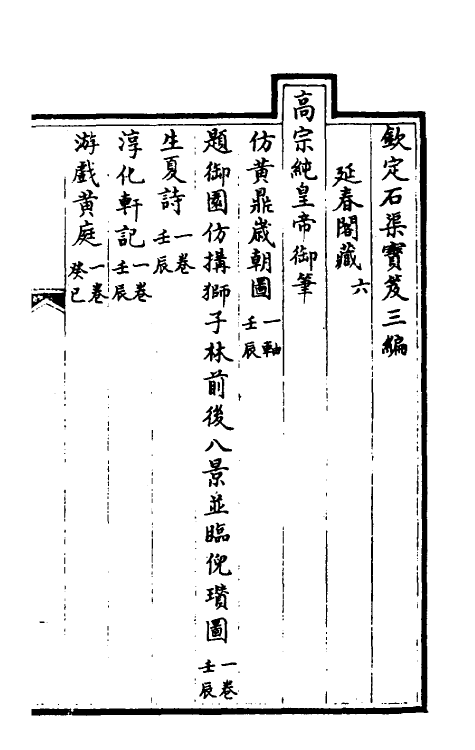 欽定石渠寶笈三編
延春閣藏 六
高宗純皇帝御筆
仿黃鼎歲朝圖 一軸 壬辰
題御園仿搆獅子林前後八景並臨倪瓚圖 一卷 壬辰
生夏詩 一卷 壬辰
淳化軒記 一卷 壬辰
游戲黃庭 一卷 癸巳